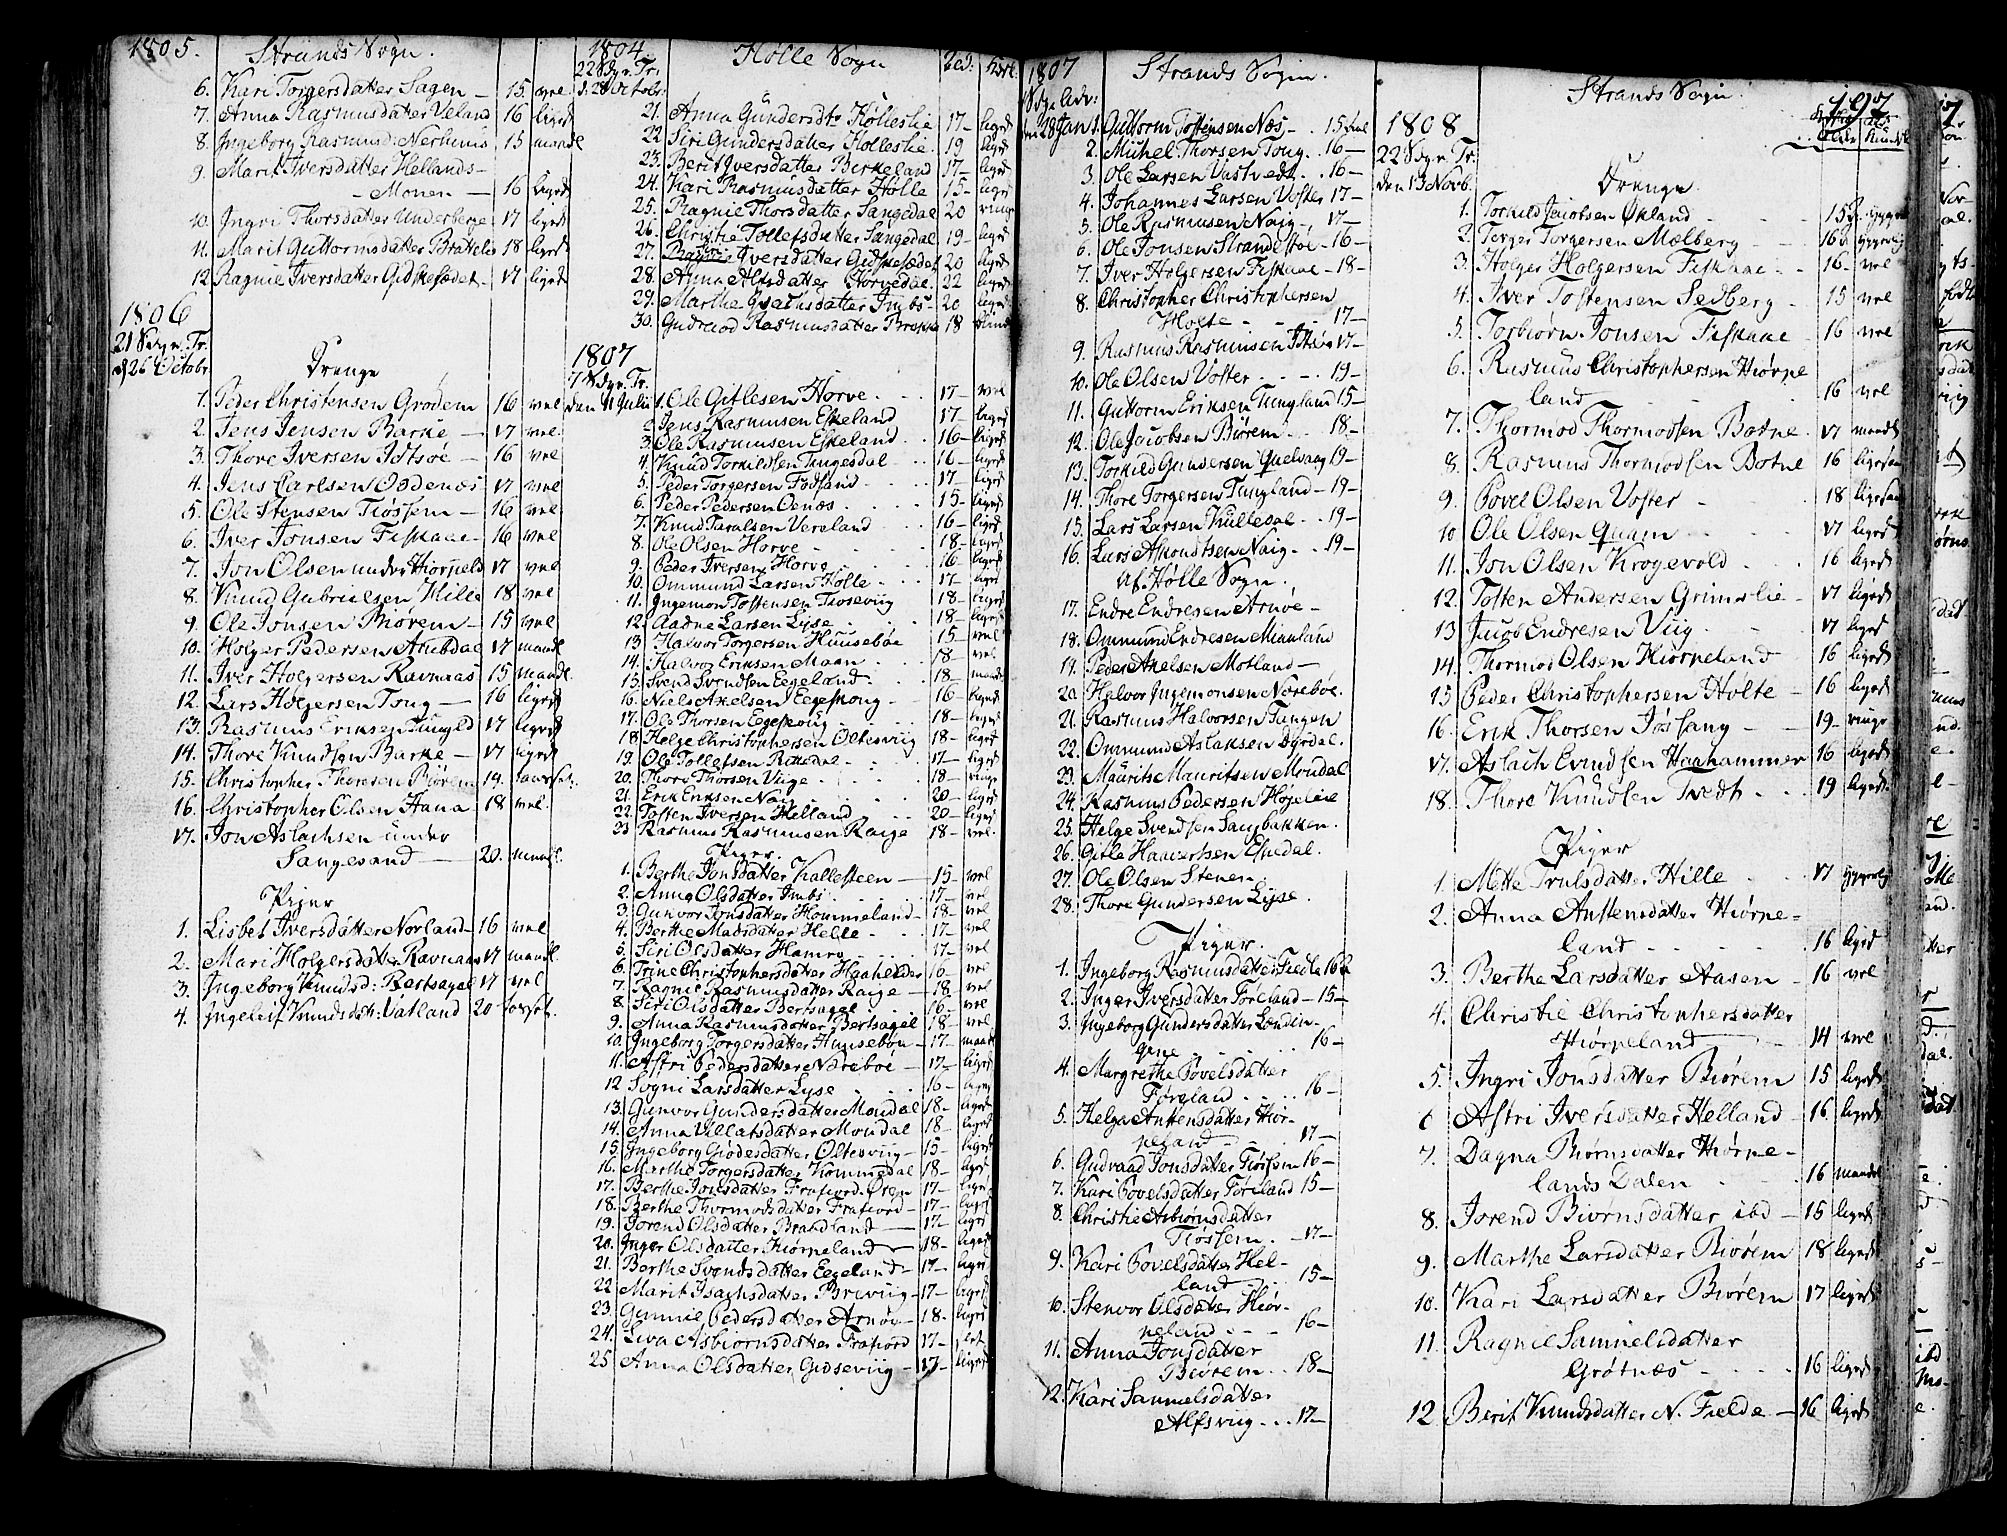 1805.
Strands Sogn.
6. Kari Torgersdatter Sagen — 15. vel
7. Anna Rasmusdatter Veland 16 ligeds
8. Ingeborg Rasmusd: Nerhuus 15 maadel
9. Marit Iversdatter Hellands-
- Monen — 16 ligeds
10. Ingri Thorsdatter Underberge 17 ligeds
11. Marit Guttormsdatter Brattelie 18 ligeds
12 Ragnie Iversdatter Gidskesædet - 17 ligeds
1806
21 Sdgr. Tr.
d 26 Octobr
Drenge
1. Peder Christensen Grødem 16 vel
2. Jens Jensen Barke — 17 vel.
3. Thore Iversen Idtsøe — 16 vel
4. Jens Carlsen Oddenæs 17 vel
5. Ole Stensen Tiøssem — 16 vel
6. Iver Jonsen Fiskaae — 16 vel
7. Jon Olsen under Hiørpeld 17 vel
8. Knud Gabrielsen Hille 18 vel
9. Ole Jonsen Biørem — 15 vel
10. Holger Pedersen Arubdal 17 maadl
11. Iver Holgersen Ravnaas 15 maadl.
12. Lars Holgersen Toug — 16 ligeds
13. Rasmus Eriksen Tungld 17 ligeds
14. Thore Knudsen Barke — 17 ligeds
15. Christopher Thorsen Biørem 19.
16. Christopher Olsen Hana 18 vel.
17. Jon Aslachsen under
Sangesand — 20. maadl.
Piger
1. Lisbet Iversdatter Norland — 16 vel
2. Mari Holgersdatter Ravnaas 17 maadl.
3. Ingeborg Knudsd: Bertsagel 17 vel
4. Ingeleif Knudsdtr: Vatland 20
1804
22 Sdgr. Tr.
d. 28 Octobr:
Holle Sogn
21. Anna Gundersdtr Holleslie 17 — ligeds
22 Siri Gundersdatter Holleslie. 19 ligeds
23. Berit Iversdatter Birkeland 17 — ligeds
24. Kari Rasmusdatter Holle 15 — ligeds
25. Ragnie Thorsdatter Sangedal 20 ringe
26. Christie Tollefsdatter Sangedal 19 — ligeds
27. Iversdatter Gidskesædet 20 ligeds
28. Anna Alfsdatter Horvedal. 22 ligeds
29. Marthe Isachsdatter Imbs - 20 ligeds
30. Gudraad Rasmusdatter Brekke 18 blind
1807
7 Sdgr. Tr.
den 11 Julii
1. Ole Gitlesen Horve . 17 — vel
2 Jens Rasmusen Eskeland 17 ligeds
3. Ole Rasmusen Eskeland . . 16 — ligeds
4. Knud Torkildsen Tungesdal . . 16 — ligeds
5. Peder Torgersen Fossand . . 17 — ligeds
6. Peder Pedersen Oenæs . . . 15 — ligeds
7. Knud Taralsen Vereland . . 16 — ligeds
8. Ole Olsen Horve . . . 18 — ligeds
9. Peder Iversen Horve . . 16 ligeds
10. Ommund Larsen Holle . . 17 — ligeds
11. Ingemon Tostensen Tiosevig 18 — ligeds
12. Aadne Larsen Lyse . . . 18 — ligeds
13 Halvor Torgersen Huusebøe 15 — vel
14. Halvor Eriksen Maan . . . 18 — vel
15. Svend Svendsen Eegeland . 18 — maadl
16. Niels Axelsen Eegeskoug . 16 — ligeds
17. Ole Thorsen Eegeskoug . . 18 — ligeds
18 Helge Christophersen Oltesviig 18 — ligeds
19. Ole Tollefsen Rettedal . . 17 — ligeds
20. Thore Thorsen Viige . . 18 — ringe
21. Erik Eriksen Naig . . 20 — ligeds
22. Tosten Iversen Helland . . 20 — ligeds
23 Rasmus Rasmusen Raige 18 — vel.
Piger
1. Berthe Jonsdatter Kallesteen — 15 — vel
2. Anna Olsdatter Imbs . . . 17 — vel
3. Gunvor Jonsdatter Hommeland 18 — vel
4. Berthe Madsdatter Helle . . . 17 — vel
5. Siri Olsdatter Hamre . . 17 — vel
6. Trine Christophersdatter Haahelder 16 — vel
7. Ragnie Rasmusdatter Raige — 18 — vel
8. Siri Olsdatter Bertsagel . . . 16 — vel
9. Anna Rasmusdatter Bertsagel 18 — vel
10. Ingeborg Torgersdatter Huusebøe — 17 — maadl
11. Astri Pedersdatter Nærebøe — 17 — ligeds
12 Sogni Larsdatter Lyse . . 16 — ligeds
13. Gunvor Gundersdatter Moudal 18 — ligeds
14. Anna Villatsdatter Moudal 18 — ligeds
15. Ingeborg Giødesdatter Oltesviig — 15 — ligeds
16. Marthe Torgersdatter Kommedal 18 — ligeds
17. Berthe Jonsdatter Frafiord Ören 17 — ligeds
18. Berthe Thormodsdatter Frafiord — 17 — ligeds
19. Jorend Olsdatter Brandland — 17 — ligeds
20. Inger Olsdatter Hiørpeland — 18 — ligeds
21. Berthe Svendsdatter Eegeland — 17 — ligeds
22 Marit Isachsdatter Breviig — 17 — ligeds
23. Gunnil Pedersdatter Arnøe — 18 — ligeds
24. Siva Asbiornsdatter Frafiord 17 — slet
25 Anna Olsdatter Gidseviig — 17 — ligeds
1807
Strands Sogn.
den 28 Jan
1. Guttorm Tostensen Næs — . 15
2. Michel Thorsen Toug . — 16 —
3. Ole Larsen Vastvedt . . 16 —
4. Johannes Larsen Voster 17 —
5. Ole Rasmusen Naig — . 17 —
6. Ole Jonsen Strandestøe — 16 —
7. Iver Holgersen Fiskaae — 18 —
8. Christopher Christophersen
Holte — — — 17 —
9. Rasmus Rasmusen Idtsøe 17 —
10. Ole Olsen Voster . . . 19 —
11. Guttorm Eriksen Tungland 15 —
12. Ole Jacobsen Biørem . . 18 —
13. Torkild Gundersen Quelvaag 19 —
14. Thore Torgersen Tungland — 19 —
15. Lars Larsen Kulledal . . 19 —
16. Lars Amondtsen Naig . . 19 —
Af Holle Sogn.
17. Endre Endresen Arnøe —
18. Ommund Endresen Mianland
19. Peder Axelsen Motland —
20. Halvor Ingemonsen Nærebøe.
21. Rasmus Halvorsen Tangen
22. Ommund Aslaksen Dyrdal.
23. Maurits Mauritsen Moudal
24. Rasmus Pedersen Højelie
25. Helge Svendsen Sangbakken.
26. Gitle Haavertsen Espedal.
27. Ole Olsen Stenen.
28. Thore Gundersen Lyse.
Piger.
1. Ingeborg Rasmusdatter Fielde 16
2. Inger Iversdatter Føreland — 15 —
3. Ingeborg Gundersdatter Løndin-
gene . . . . . 16 —
4. Margrethe Povelsdatter
Føreland . . . . 16 —
5. Helga Anstensdatter Hiør-
peland — 17 —
6. Gudraad Jonsdatter Tiøssem 16 —
7. Kari Povelsdatter Føreland 15 —
8. Christie Asbiørnsdatter
Tiøssem . — 17 —
9. Kari Povelsdatter Hel-
land . . . 15 —
10. Stenvor Olsdatter Hiør-
peland . — — 16 —
11. Anna Jonsdatter
Biørem . . 18 —
12. Kari Samuelsdatter
Alfsvug . . . 17 —
1808
22 Sdgr. Tr.
den 13 Novb.
Strands Sogn.
197
Drenge.
1. Torkild Jacobsen Økland — — 15
2. Torger Torgersen Mælberg — — 16
3. Holger Holgersen Fiskaae — — 16 - vel
4. Iver Tostensen Sedberg — 15 vel
5. Torbiørn Jonsen Fiskaae — 16 vel
6. Rasmus Christophersen Hiørpe
land — — — 16 vel
7. Thormod Thormodsen Botne. 17 maadl
8. Rasmus Thormodsen Botne 16 ligesaa
9. Povel Olsen Voster — . 18 ligesaa
10 Ole Olsen Quam — — . 17 ligeds
11. Jon Olsen Krogevold . . . 16 ligeds
12. Tosten Andersen Grimslie — 17 ligeds
13 Jacob Endresen Viig . — — 17 ligeds
14. Thormod Olsen Hiørpeland 16 ligeds
15 Peder Christophersen Holte — 16 ligeds
16. Erik Thorsen Jøssang — — 19 — ringe
17. Aslach Evindsen Haahammer 16 ligeds
18. Thore Knudsen Tvedt . . . 19 ligeds.
Piger
1. Mette Trulsdatter Hille . . 17
2. Anna Anstensdatter Hiørpe-
land — — — . 16 ligeds
3. Berthe Larsdatter Aasen — 16 vel
4. Christie Christophersdatter
Hiørpeland — 14 vel
5. Ingri Jonsdatter Biørem 15 ligeds
6 Astri Iversdatter Helland — 16 ligeds
7. Dagna Biørnsdatter Hiørpe-
lands Dalen — . 16 maadel
8. Jorend Biornsdatter ibd — 15 ligeds
9. Marthe Larsdatter Biørem 18 ligeds
10. Kari Larsdatter Biørem 17 ligeds
11. Ragnil Samuelsdatter
Grøtnæs — . . . 16 ligeds
12 Berit Knudsdatter N. Fielde — 16 ligeds